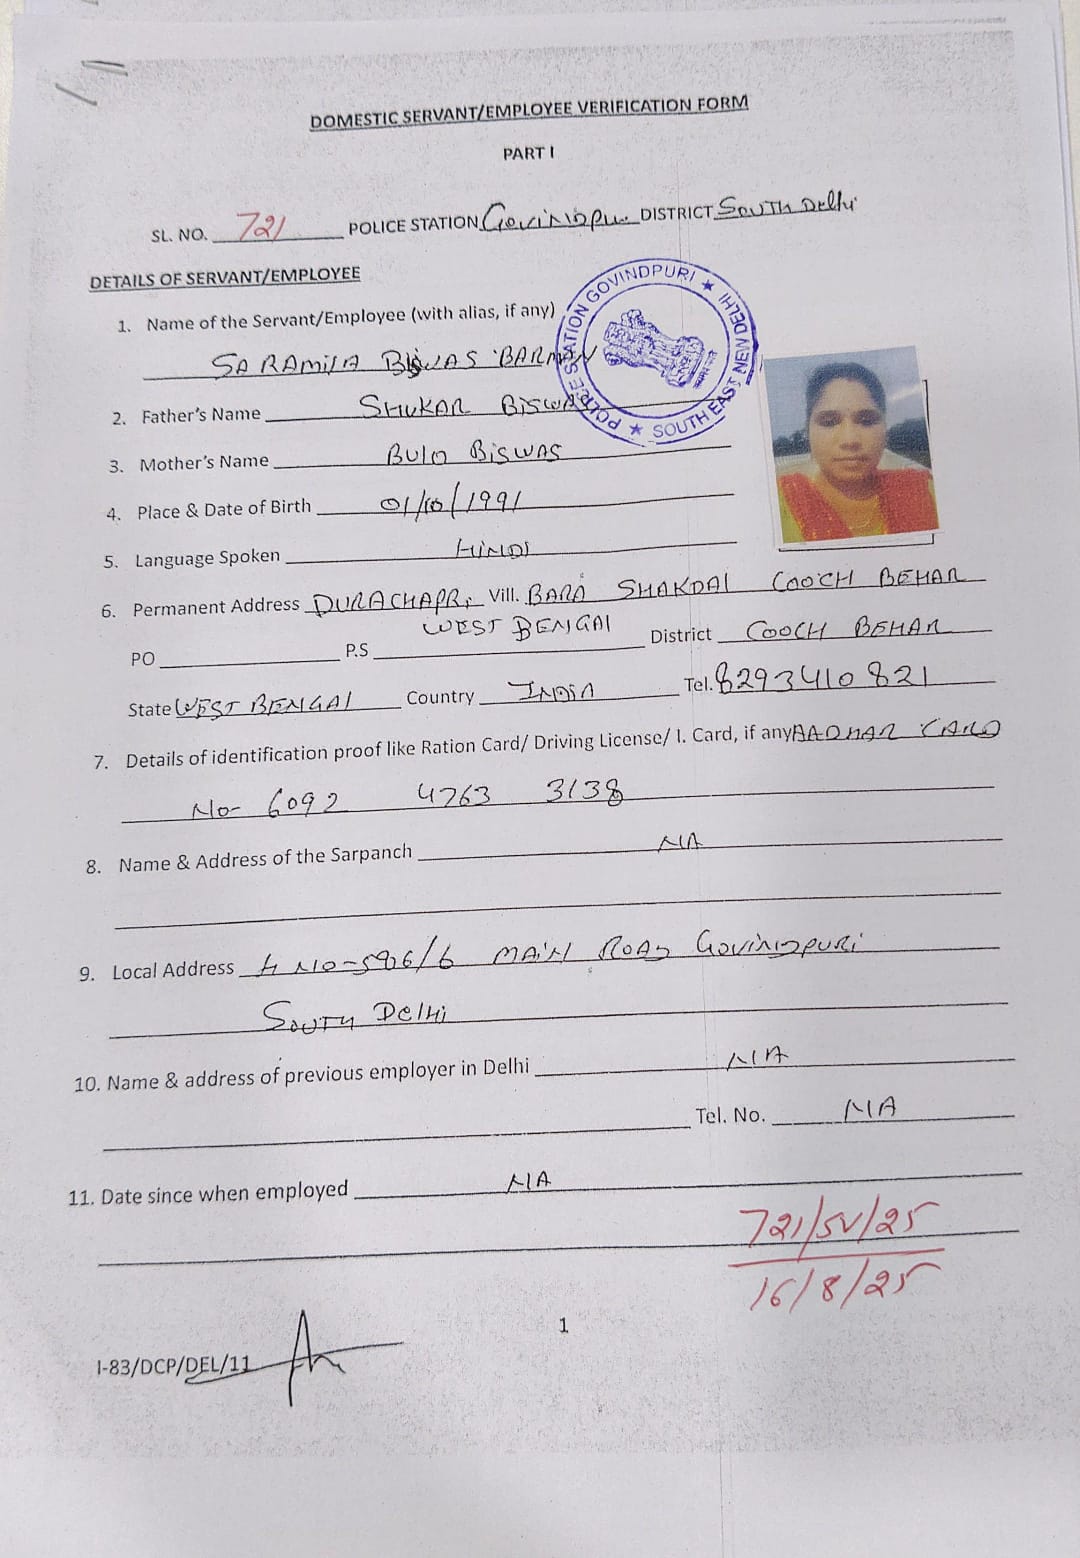 DOMESTIC SERVANT/EMPLOYEE VERIFICATION FORM
PART I
SL. NO. 721 POLICE STATION Govindpu DISTRICT South Delhi
DETAILS OF SERVANT/EMPLOYEE
POLICE STATION GOVINDPURI ★ SOUTH EAST NEW DELHI ★
1. Name of the Servant/Employee (with alias, if any)
SARAMILA BISWAS BARMAN
2. Father's Name SHUKAR BISWAS
3. Mother's Name BULO BISWAS
4. Place & Date of Birth 01/10/1991
5. Language Spoken HINDI
6. Permanent Address DURACHAPRI Vill. BARA SHAKDAL COOCH BEHAR
WEST BENGAL
PO P.S District COOCH BEHAR
State WEST BENGAL Country INDIA Tel. 8293410821
7. Details of identification proof like Ration Card/ Driving License/ I. Card, if any AADHAR CARD
No- 6092 4763 3138
8. Name & Address of the Sarpanch NA
9. Local Address MAIN ROAD GOVINDPURI
SOUTH Delhi
10. Name & address of previous employer in Delhi NA
Tel. No. NA
11. Date since when employed NA
721/SV/25
16/8/25
1
I-83/DCP/DEL/11